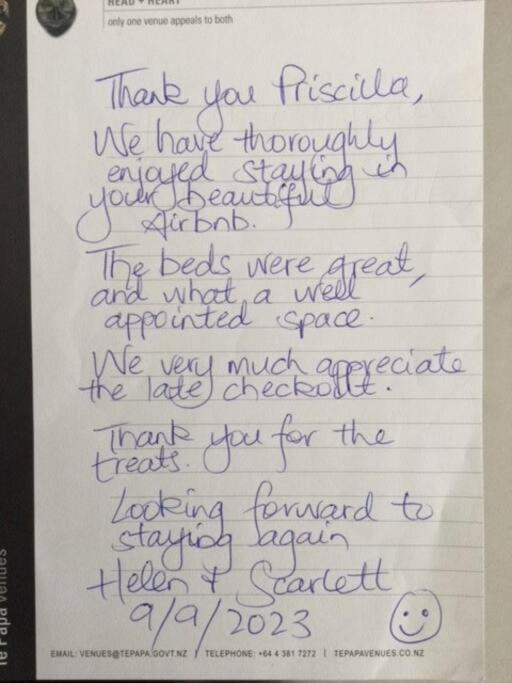 HEAD + HEART
only one venue appeals to both
Thank you Priscilla,
We have thoroughly
enjoyed staying in
your beautiful
Airbnb.
The beds were great,
and what a well
appointed space.
We very much appreciate
the late checkout.
Thank you for the
treats.
Looking forward to
staying again
Helen & Scarlett
9/9/2023
EMAIL: VENUES@TEPAPA.GOVT.NZ | TELEPHONE: +64 4 381 7272 | TEPAPAVENUES.CO.NZ
Te Papa venues